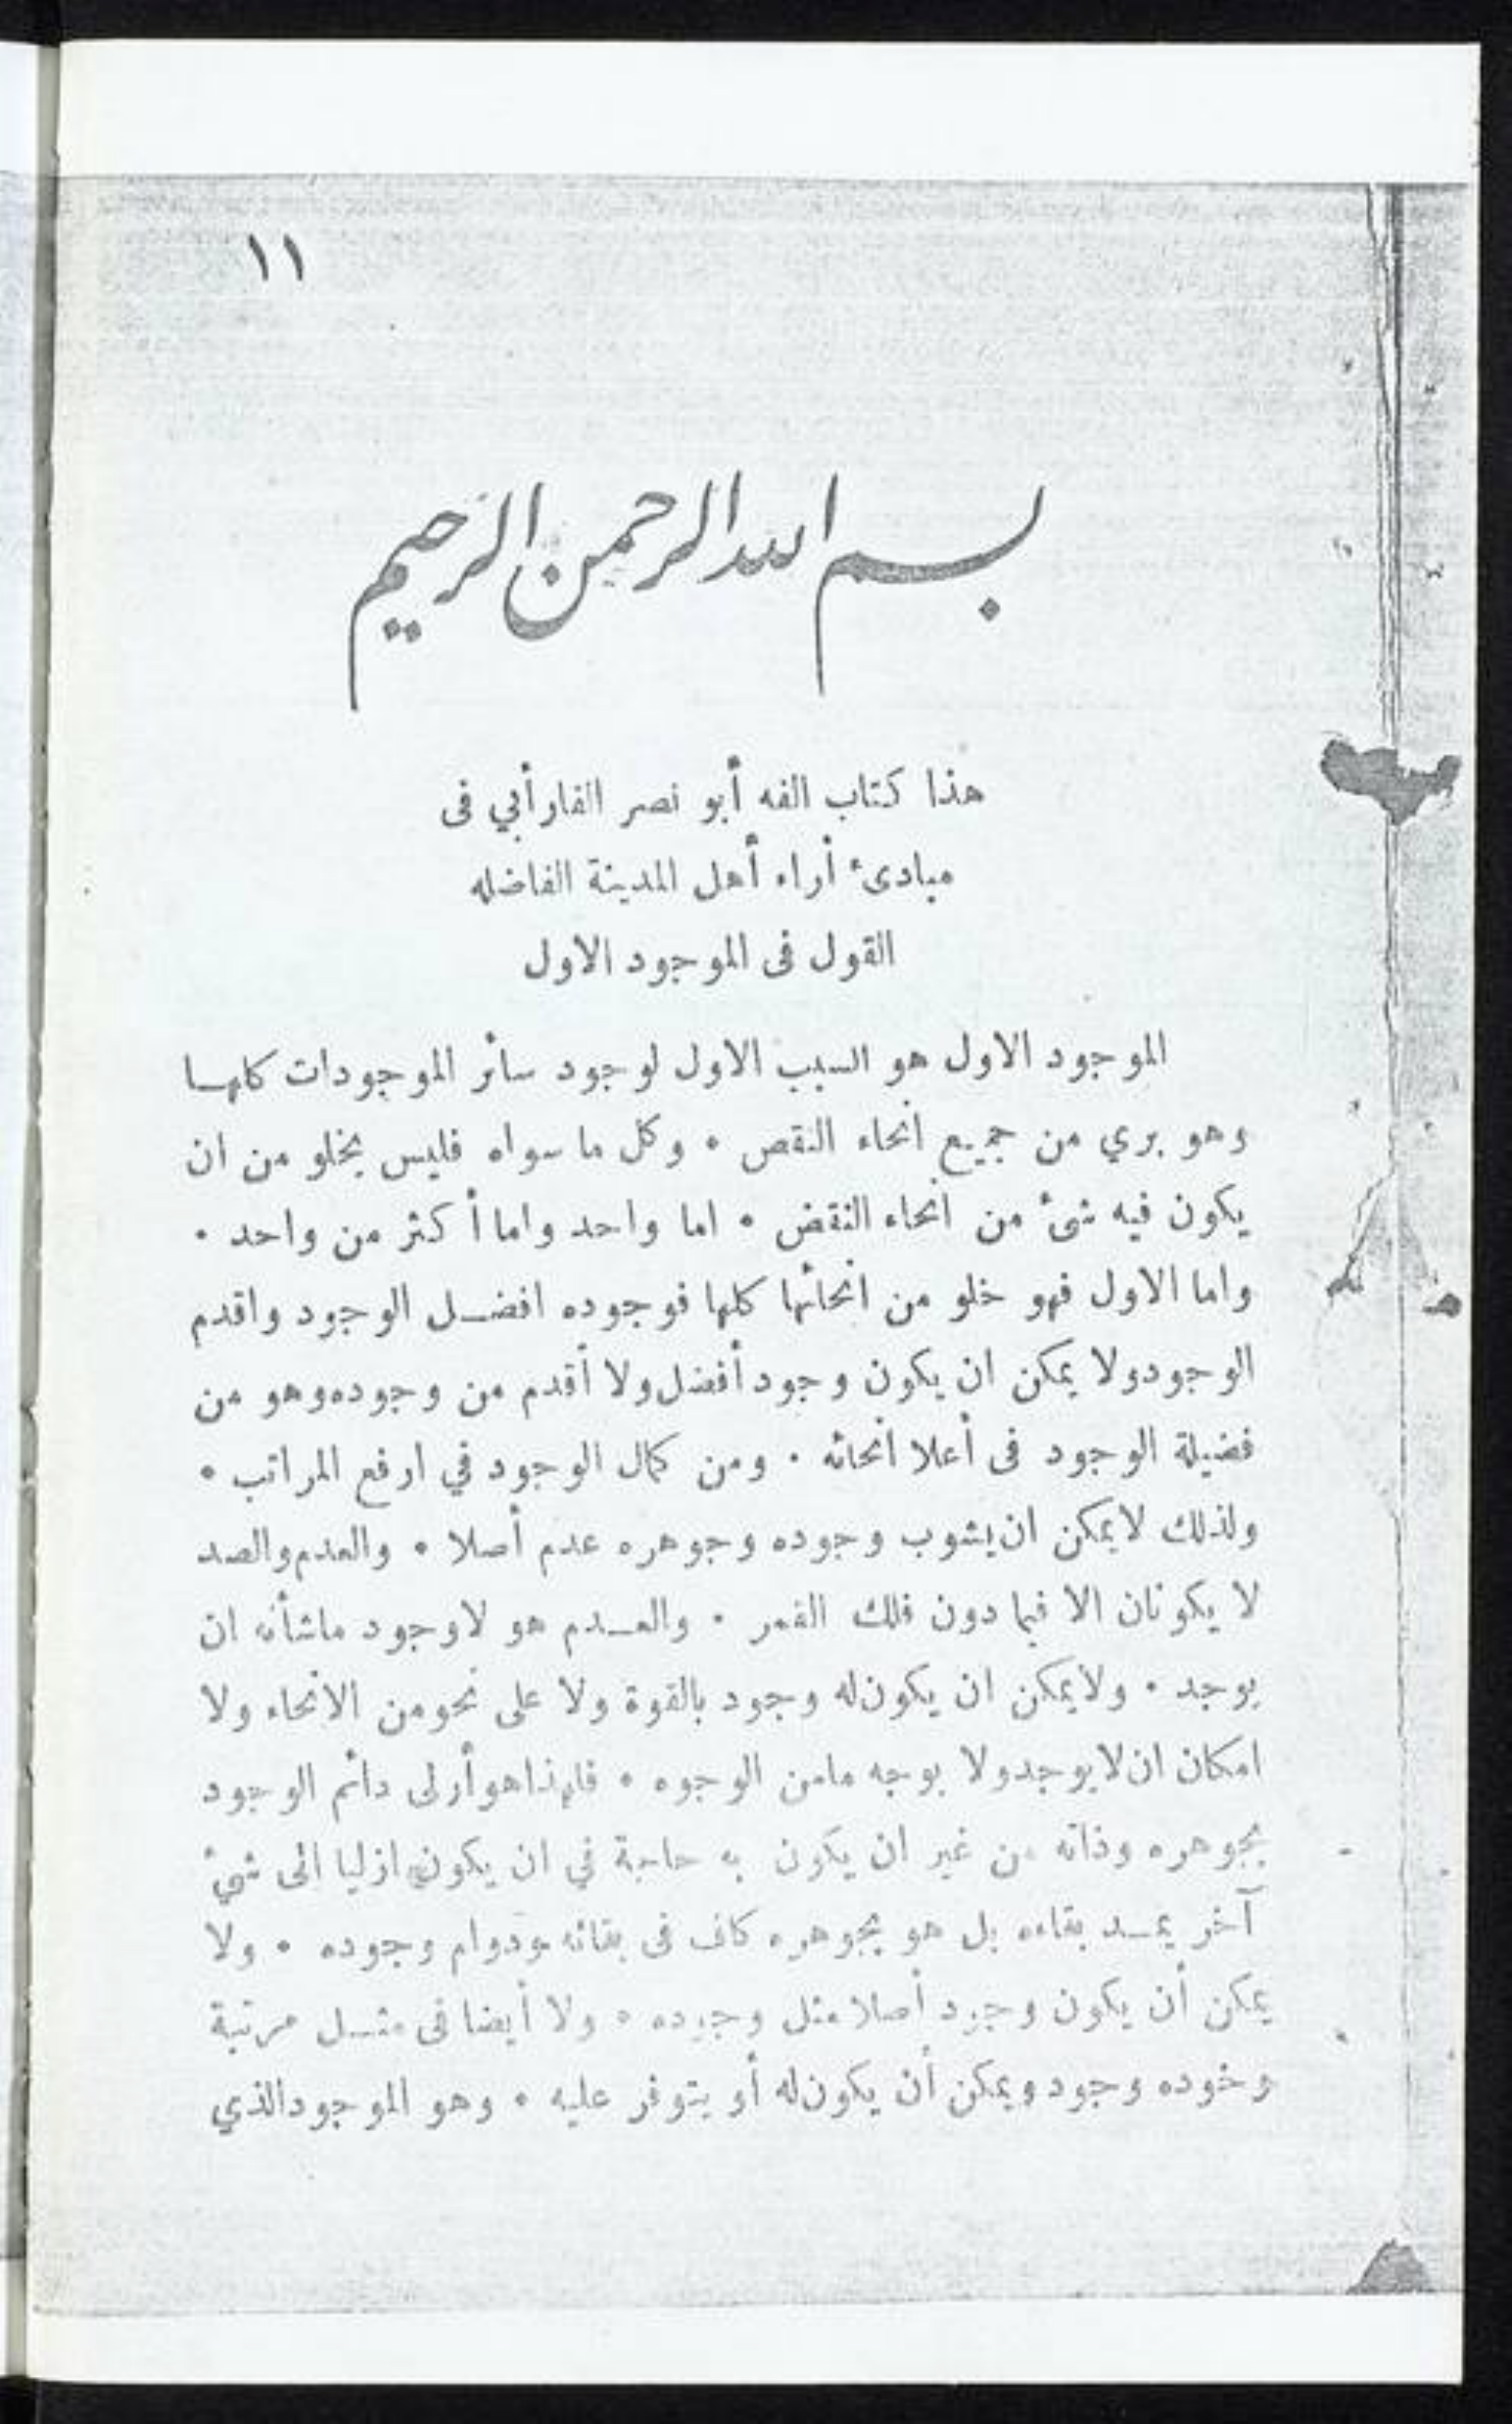 ١١
بسم الله الرحمن الرحيم
هذا كتاب الفه أبو نصر الفارأبي فى
مبادئ أراء أهل المدينة الفاضله
القول فى الموجود الاول
الموجود الاول هو السبب الاول لوجود سائر الموجودات كلها
وهو بري من جميع انحاء النقص ٠ وكل ما سواه فليس يخلو من ان
يكون فيه شئ من انحاء النقض ٠ اما واحد واما أكثر من واحد ٠
واما الاول فهو خلو من انحائها كلها فوجوده افضل الوجود واقدم
الوجود ولا يمكن ان يكون وجود أفضل ولا أقدم من وجوده وهو من
فضيلة الوجود فى أعلا انحائه ٠ ومن كمال الوجود في ارفع المراتب ٠
ولذلك لا يمكن ان يشوب وجوده وجوهره عدم أصلا ٠ والعدم والضد
لا يكونان الا فيما دون فلك القمر ٠ والعدم هو لاوجود ماشأنه ان
يوجد ٠ ولا يمكن ان يكون له وجود بالقوة ولا على نحو من الانحاء ولا
امكان ان لا يوجد ولا بوجه مامن الوجوه ٠ فلهذا هو أزلى دائم الوجود
بجوهره وذاته من غير ان يكون به حاجة في ان يكون ازليا الى شيْ
آخر يمد بقاءه بل هو بجوهره كاف فى بقائه ودوام وجوده ٠ ولا
يمكن أن يكون وجود أصلا مثل وجوده ٠ ولا أيضا فى مثل مرتبة
وخوده وجود ويمكن أن يكون له أو يتوفر عليه ٠ وهو الموجود الذي